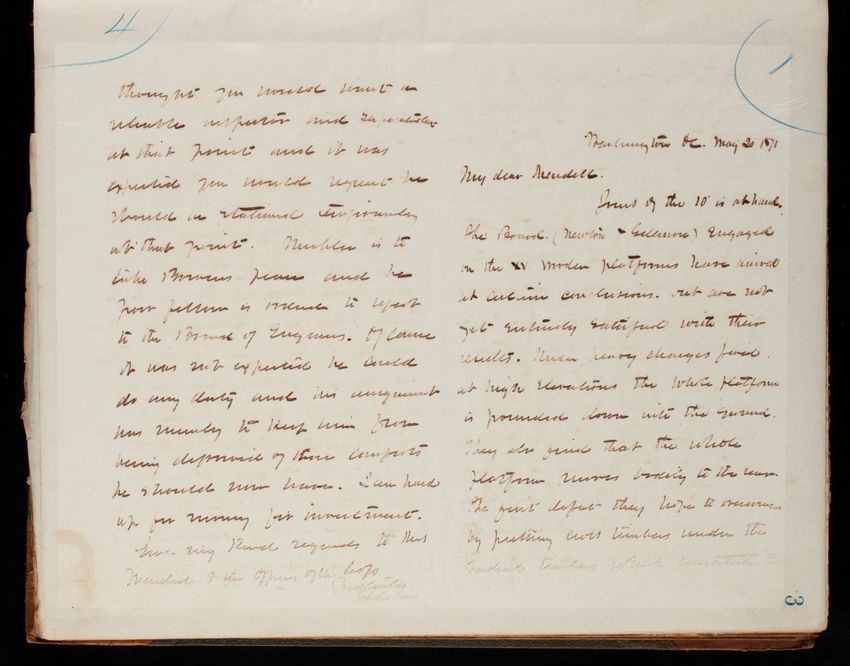 4
thought you would want a
reliable inspector and
at that point and it was
expected you would request he
should be stationed temporarily
at that point. is to
take place and he
poor fellow is ordered to report
to the Board of Engineers. Of course
it was not expected he could
do any duty and his assignment
was merely to keep him from
being deprived of those comforts
he should now have. I am hard
up for money for investment.
Give my kind regards to Mrs
Mendell & the officers of the Corps
1
Washington DC. May 20 1871
My dear Mendell.
Yours of the 10" is at hand.
The Board (Newton & Gillmore) engaged
on the XV wooden platforms have arrived
at certain conclusions. but are not
yet entirely satisfied with their
results. Under heavy charges fired
at high elevations the whole platform
is pounded down into the ground.
They also find that the whole
platform moves bodily to the rear.
The first defect they hope to overcome
by putting cross timbers under the
timbers which constitute the
3